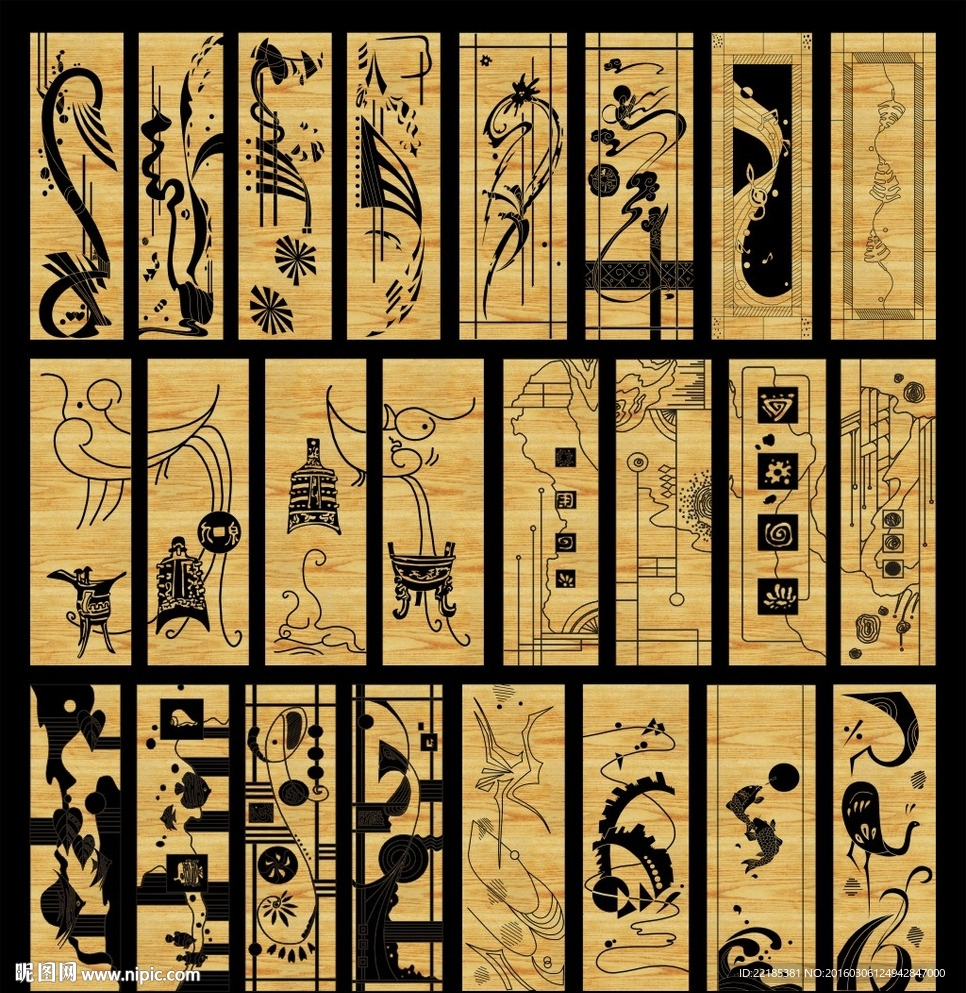 昵图网 www.nipic.com
ID:22185381 NO:20160306124942847000